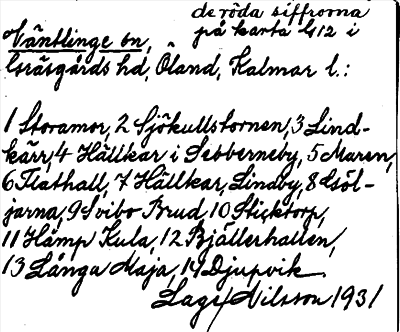 de röda siffrorna
på karta 412 i
Ventlinge sn,
Gräsgårds hd, Öland, Kalmar l.:
1 Storamor, 2 Sjökullstornen, 3 Lind-
kärr, 4 Hällkar i Sebberneby, 5 Maren,
6 Flathall, 7 Hällkar, Lindby, 8 Göl-
jarna, 9 Svibo Brud, 10 Sticktorp,
11 Hamp Kula, 12 Bjällerhallen,
13 Långa Maja, 14 Djupvik.
Lage Nilsson 1931